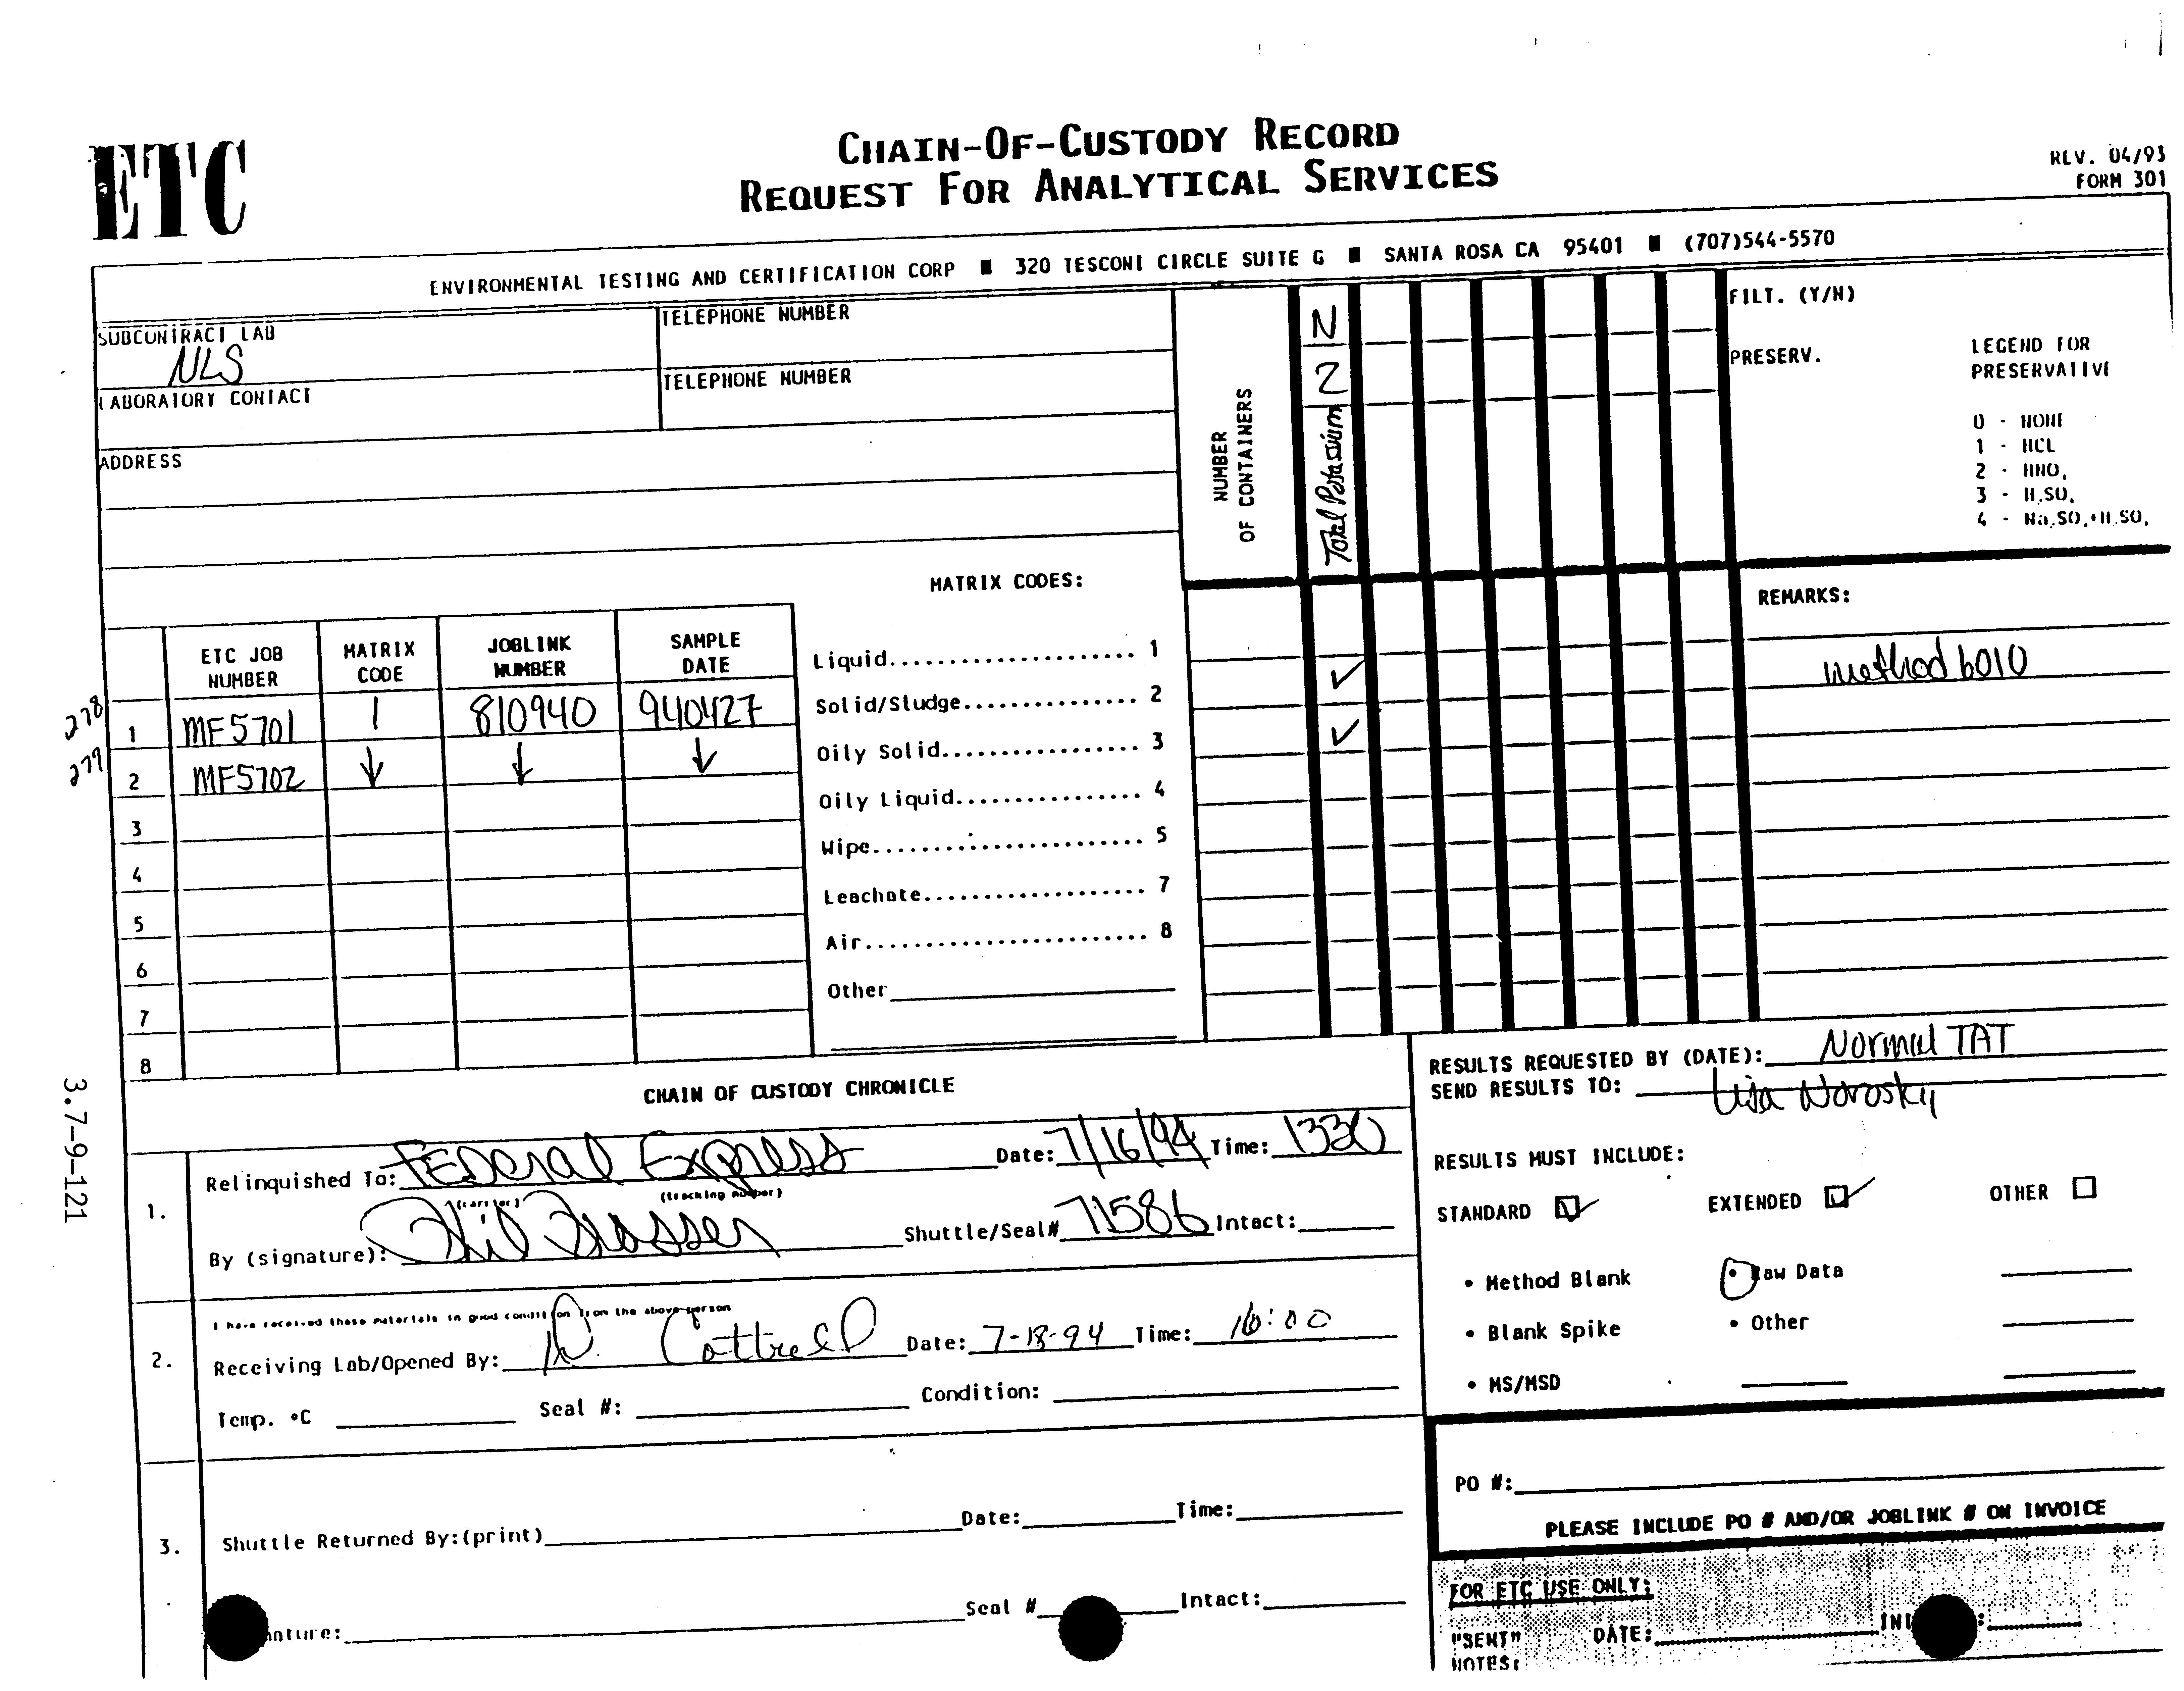 ETC
CHAIN-OF-CUSTODY RECORD
REQUEST FOR ANALYTICAL SERVICES
REV. 04/93
FORM 301
ENVIRONMENTAL TESTING AND CERTIFICATION CORP ■ 320 TESCONI CIRCLE SUITE G ■ SANTA ROSA CA 95401 ■ (707)544-5570
SUBCONTRACT LAB
NLS
TELEPHONE NUMBER
LABORATORY CONTACT
TELEPHONE NUMBER
ADDRESS
NUMBER
OF CONTAINERS
N
2
Total Potassium
FILT. (Y/N)
PRESERV.
LEGEND FOR
PRESERVATIVE
0 - NONE
1 - HCL
2 - HNO,
3 - H,SO,
4 - Na,SO,+H,SO,
MATRIX CODES:
REMARKS:
method 6010
ETC JOB NUMBER MATRIX CODE JOBLINK NUMBER SAMPLE DATE
278 1 MF5701 1 810940 940427 ✓
277 2 MF5702 ↓ ↓ ↓ ✓
3
4
5
6
7
8
Liquid..................... 1
Solid/Sludge............... 2
Oily Solid................. 3
Oily Liquid................ 4
Wipe....................... 5
Leachate................... 7
Air........................ 8
Other
3.7-9-121
CHAIN OF CUSTODY CHRONICLE
1.
Relinquished To: Federal Express Date: 7/16/94 Time: 1330
(carrier) (tracking number)
By (signature): Shuttle/Seal# 71586 Intact:
2.
I have received these materials in good condition from the above person
Receiving Lab/Opened By: Cottrell Date: 7-18-94 Time: 16:00
Temp. °C Seal #: Condition:
3.
Shuttle Returned By:(print) Date: Time:
Seal # Intact:
RESULTS REQUESTED BY (DATE): Normal TAT
SEND RESULTS TO: Lisa Norosky
RESULTS MUST INCLUDE:
STANDARD ☑ EXTENDED ☑ OTHER ☐
• Method Blank • Raw Data
• Blank Spike • Other
• MS/MSD
PO #:
PLEASE INCLUDE PO # AND/OR JOBLINK # ON INVOICE
FOR ETC USE ONLY:
"SENT" DATE:
NOTES: